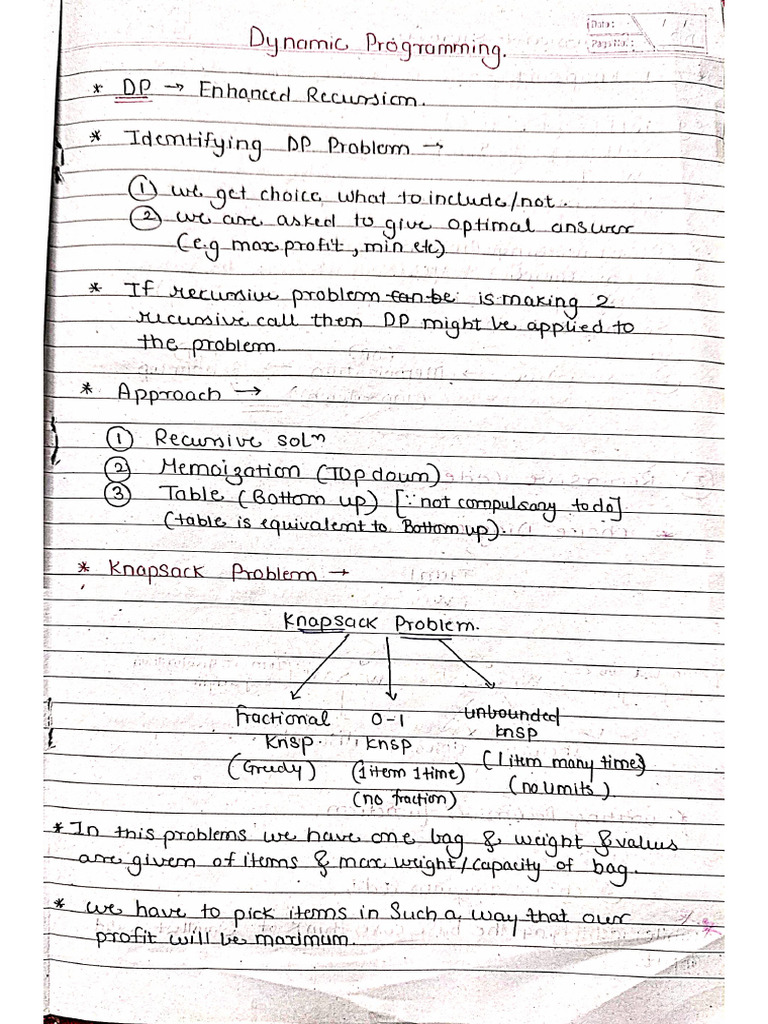 Date: / /
Page No.:
Dynamic Programming.
* DP → Enhanced Recursion.
* Identifying DP Problem →
① we get choice, what to include/not.
② we are asked to give optimal answer
(e.g max profit, min etc)
* If recursive problem can be is making 2
recursive call them DP might be applied to
the problem.
* Approach →
① Recursive solⁿ
② Memoization (Top down)
③ Table (Bottom up) [∵ not compulsory to do]
(table is equivalent to Bottom up).
* Knapsack Problem →
Knapsack Problem.
Fractional 0-1 unbounded
Knsp. Knsp Knsp
(Greedy) (1 item 1 time) (1 item many times)
(no fraction) (no limits)
* In this problems we have one bag & weight & values
are given of items & max weight/capacity of bag.
* we have to pick items in such a way that our
profit will be maximum.